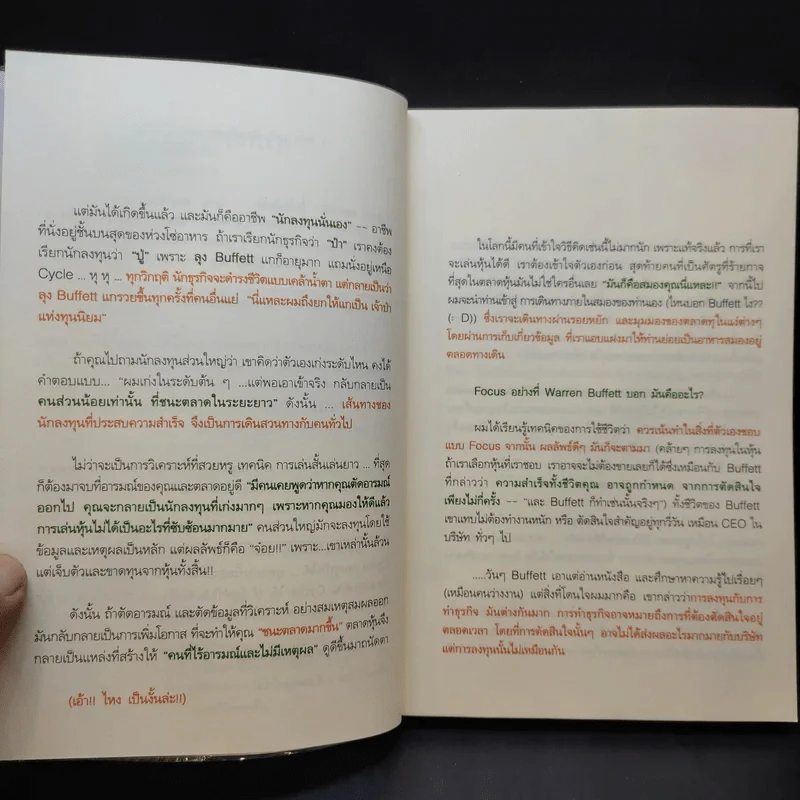 แต่มันได้เกิดขึ้นแล้ว และมันก็คืออาชีพ "นักลงทุนนั่นเอง" -- อาชีพ
ที่นั่งอยู่ชั้นบนสุดของห่วงโซ่อาหาร ถ้าเราเรียกนักธุรกิจว่า "ป๋า" เราคงต้อง
เรียกนักลงทุนว่า "ปู่" เพราะ ลุง Buffett แกก็อายุมาก แถมนั่งอยู่เหนือ
Cycle ... หุ หุ ... ทุกวิกฤติ นักธุรกิจจะดำรงชีวิตแบบเคล้าน้ำตา แต่กลายเป็นว่า
ลุง Buffett แกรวยขึ้นทุกครั้งที่คนอื่นแย่ "นี่แหละผมถึงยกให้แกเป็น เจ้าป่า
แห่งทุนนิยม"
ถ้าคุณไปถามนักลงทุนส่วนใหญ่ว่า เขาคิดว่าตัวเองเก่งระดับไหน คงได้
คำตอบแบบ... "ผมเก่งในระดับต้น ๆ ...แต่พอเอาเข้าจริง กลับกลายเป็น
คนส่วนน้อยเท่านั้น ที่ชนะตลาดในระยะยาว" ดังนั้น ... เส้นทางของ
นักลงทุนที่ประสบความสำเร็จ จึงเป็นการเดินสวนทางกับคนทั่วไป
ไม่ว่าจะเป็นการวิเคราะห์ที่สวยหรู เทคนิค การเล่นสั้นเล่นยาว ... ที่สุด
ก็ต้องมาจบที่อารมณ์ของคุณและตลาดอยู่ดี "มีคนเคยพูดว่าหากคุณตัดอารมณ์
ออกไป คุณจะกลายเป็นนักลงทุนที่เก่งมากๆ เพราะหากคุณมองให้ดีแล้ว
การเล่นหุ้นไม่ได้เป็นอะไรที่ซับซ้อนมากมาย" คนส่วนใหญ่มักจะลงทุนโดยใช้
ข้อมูลและเหตุผลเป็นหลัก แต่ผลลัพธ์ก็คือ "จ๋อย!!" เพราะ...เขาเหล่านั้นล้วน
แต่เจ็บตัวและขาดทุนจากหุ้นทั้งสิ้น!!
ดังนั้น ถ้าตัดอารมณ์ และตัดข้อมูลที่วิเคราะห์ อย่างสมเหตุสมผลออก
มันกลับกลายเป็นการเพิ่มโอกาส ที่จะทำให้คุณ "ชนะตลาดมากขึ้น" ตลาดหุ้นจึง
กลายเป็นแหล่งที่สร้างให้ "คนที่ไร้อารมณ์และไม่มีเหตุผล" ดูดีขึ้นมาถนัดตา
(เอ้า!! ไหง เป็นงั้นล่ะ!!)
ในโลกนี้มีคนที่เข้าใจวิธีคิดเช่นนี้ไม่มากนัก เพราะแท้จริงแล้ว การที่เรา
จะเล่นหุ้นได้ดี เราต้องเข้าใจตัวเองก่อน สุดท้ายคนที่เป็นศัตรูที่ร้ายกาจ
ที่สุดในตลาดหุ้นมันไม่ใช่ใครอื่นเลย "มันก็คือสมองคุณนี่แหละ!!" จากนี้ไป
ผมจะนำท่านเข้าสู่ การเดินทางภายในสมองของท่านเอง (ไหนบอก Buffett ไง??
D)) ซึ่งเราจะเดินทางผ่านรอยหยัก และมุมมองของตลาดทุนในแง่ต่างๆ
โดยผ่านการเก็บเกี่ยวข้อมูล ที่เราแอบแฝงมาให้ท่านย่อยเป็นอาหารสมองอยู่
ตลอดทางเดิน
Focus อย่างที่ Warren Buffett บอก มันคืออะไร?
ผมได้เรียนรู้เทคนิคของการใช้ชีวิตว่า ควรเน้นทำในสิ่งที่ตัวเองชอบ
แบบ Focus จากนั้น ผลลัพธ์ดีๆ มันก็จะตามมา (คล้ายๆ การลงทุนในหุ้น
ถ้าเราเลือกหุ้นที่เราชอบ เราอาจจะไม่ต้องขายเลยก็ได้ซึ่งเหมือนกับ Buffett
ที่กล่าวว่า ความสำเร็จทั้งชีวิตคุณ อาจถูกกำหนด จากการตัดสินใจ
เพียงไม่กี่ครั้ง -- "และ Buffett ก็ทำเช่นนั้นจริงๆ") ทั้งชีวิตของ Buffett
เขาแทบไม่ต้องทำงานหนัก หรือ ตัดสินใจสำคัญอยู่ทุกวี่วัน เหมือน CEO ใน
บริษัท ทั่วๆ ไป
.....วันๆ Buffett เอาแต่อ่านหนังสือ และศึกษาหาความรู้ไปเรื่อยๆ
(เหมือนคนว่างงาน) แต่สิ่งที่โดนใจผมมากคือ เขากล่าวว่าการลงทุนกับการ
ทำธุรกิจ มันต่างกันมาก การทำธุรกิจอาจหมายถึงการที่ต้องตัดสินใจอยู่
ตลอดเวลา โดยที่การตัดสินใจนั้นๆ อาจไม่ได้ส่งผลอะไรมากมายกับบริษัท
แต่การลงทุนนั้นไม่เหมือนกัน